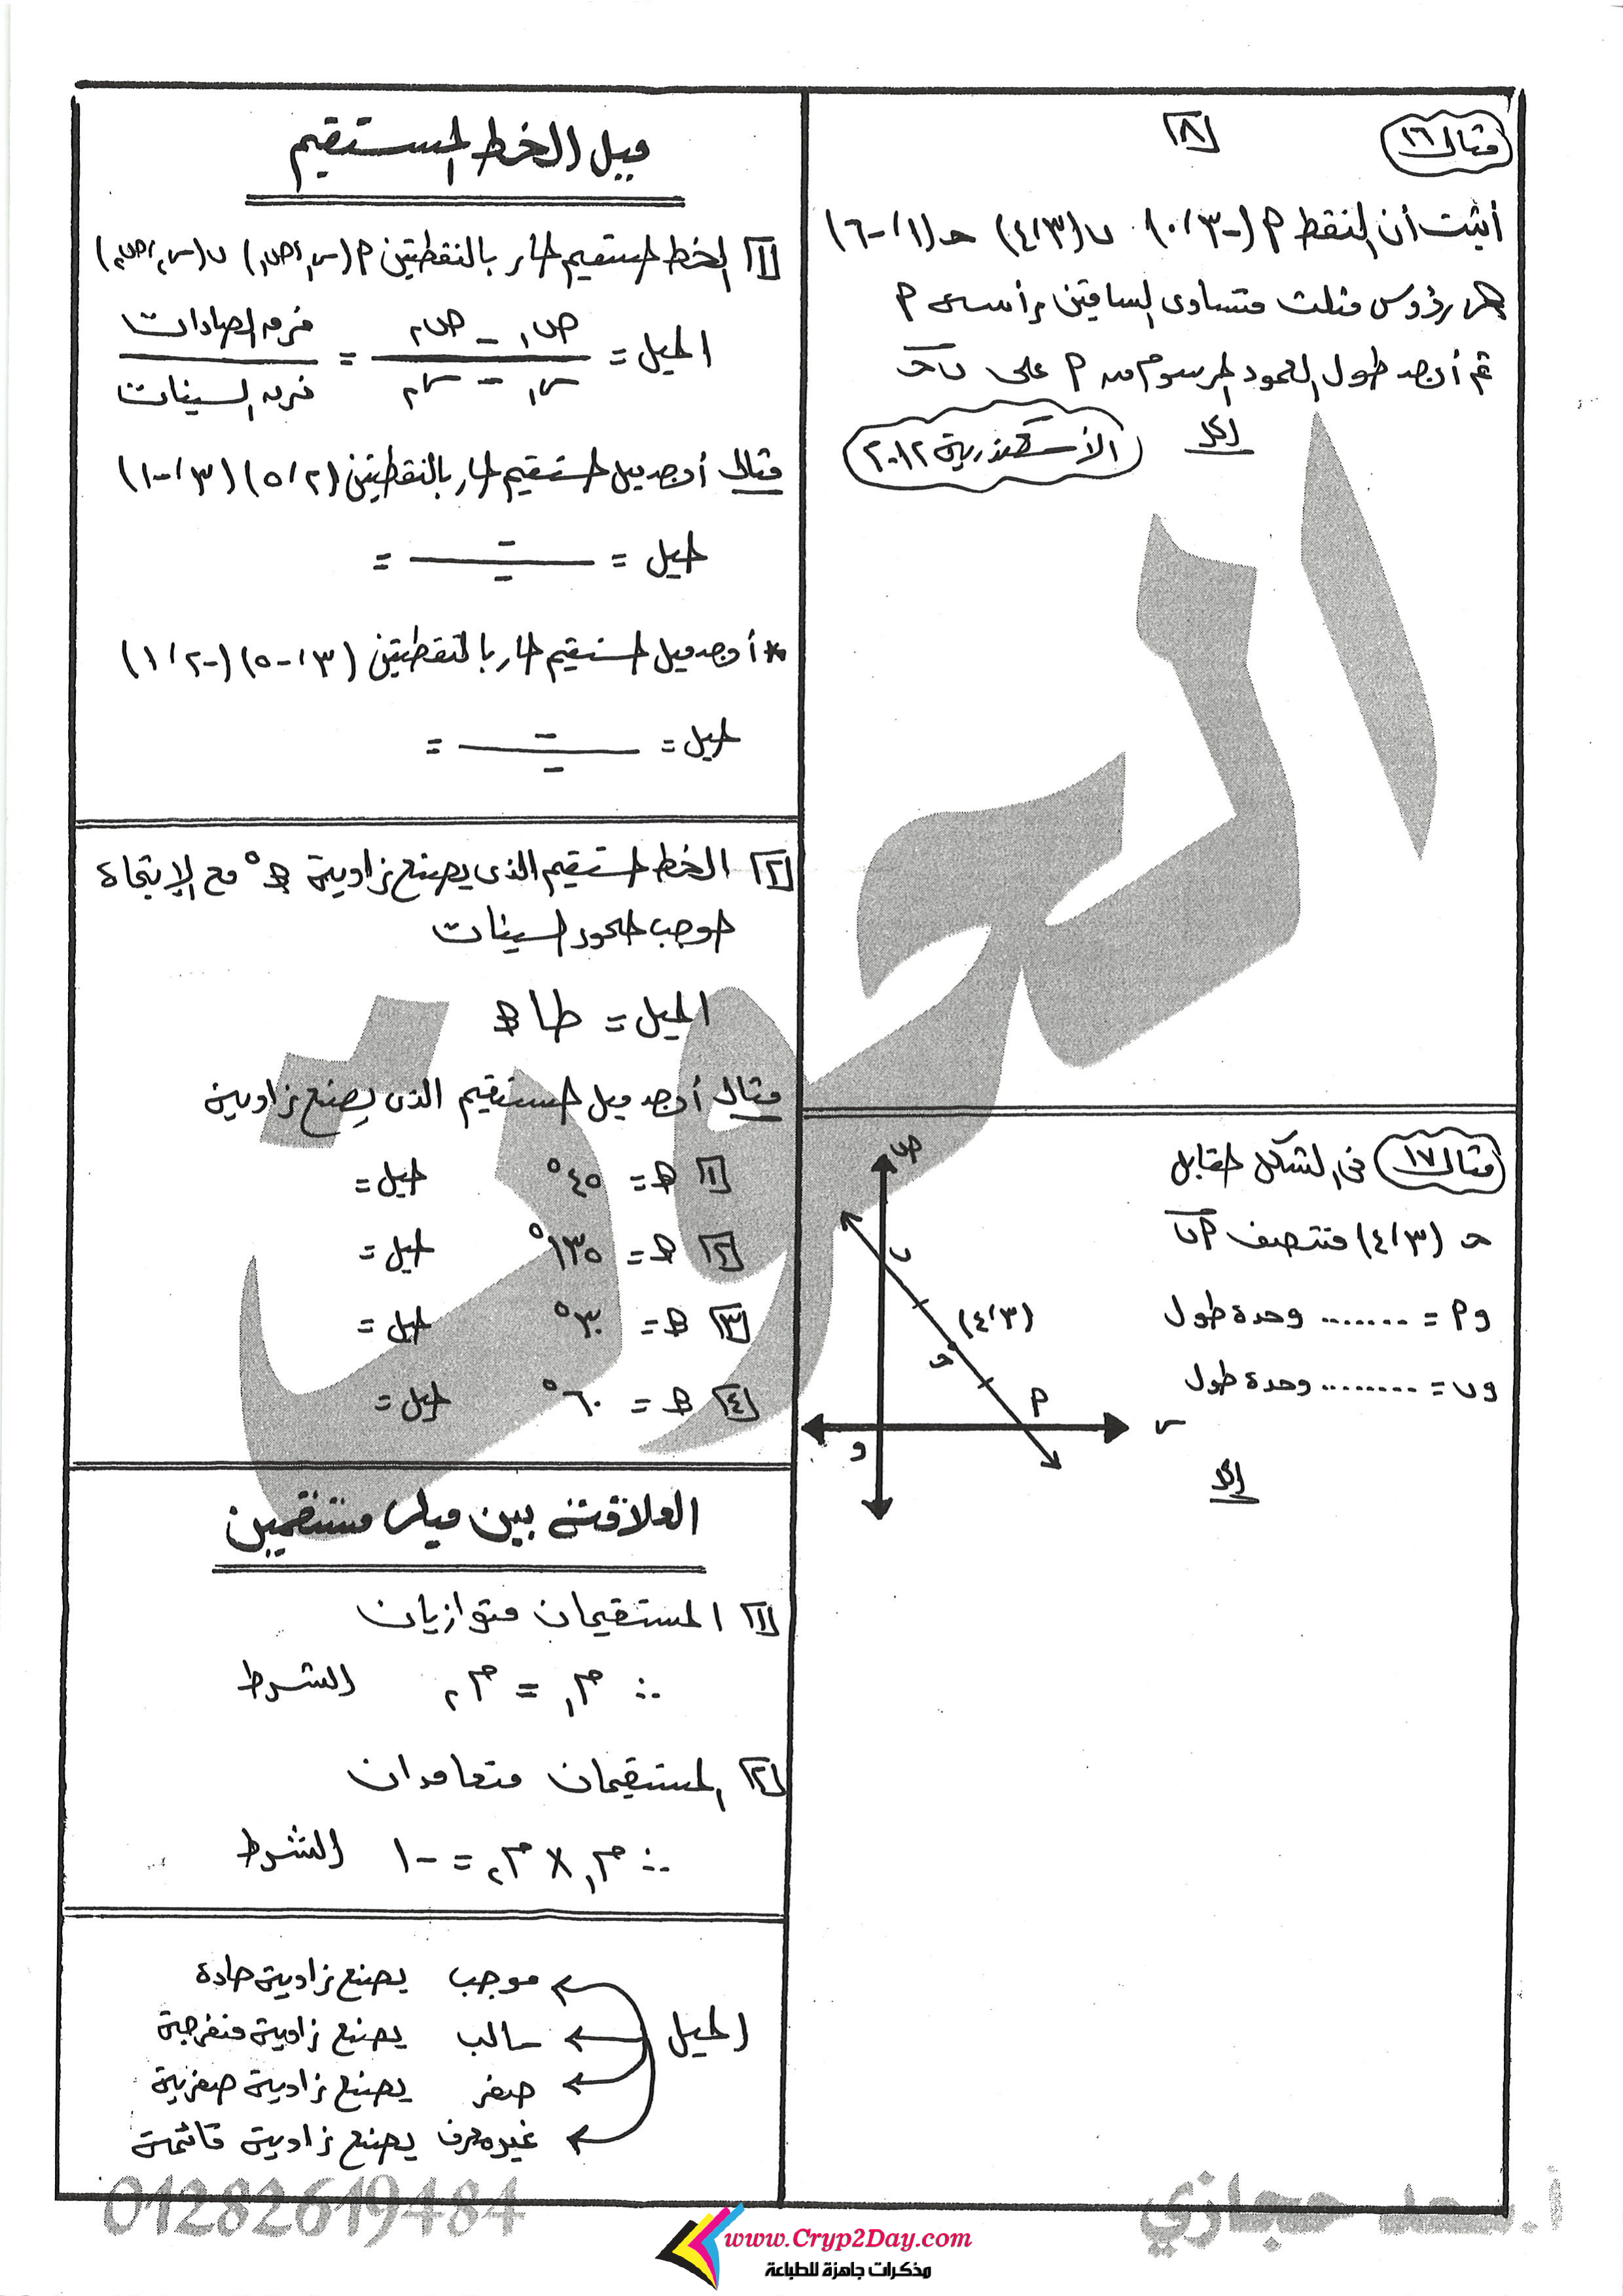 مثال ١٦
٨
أثبت أن النقط م (-٣ ، ٠) ، ب (٣ ، ٤) ، حـ (١ ، -٦)
هى رؤوس مثلث متساوى الساقين رأسه م
ثم أوجد طول العمود المرسوم من م على ب حـ
الحل
الأسكندرية ٢٠١٢
مثال ١٧ فى الشكل المقابل
حـ (٣ ، ٤) منتصف م ب
و م = ....... وحدة طول
و ب = ........ وحدة طول
الحل
ص
ب
(٣ ، ٤)
حـ
م
س
و
ميل الخط المستقيم
١ الخط المستقيم المار بالنقطتين م (س١ ، ص١) ب (س٢ ، ص٢)
الميل = (ص١ - ص٢) / (س١ - س٢) = فرق الصادات / فرق السينات
مثال أوجد ميل المستقيم المار بالنقطتين (٢ ، ٥) (٣ ، -١)
الميل = ـــ =
* أوجد ميل المستقيم المار بالنقطتين (٣ ، -٥) (-٢ ، ١)
الميل = ـــ =
٢ الخط المستقيم الذى يصنع زاوية هـ° مع الإتجاة
الموجب لمحور السينات
الميل = طا هـ
مثال أوجد ميل المستقيم الذى يصنع زاوية
١ هـ = ٤٥° الميل =
٢ هـ = ١٣٥° الميل =
٣ هـ = ٣٠° الميل =
٤ هـ = ٦٠° الميل =
العلاقة بين ميلى مستقيمين
١ المستقيمان متوازيان
∴ م١ = م٢ الشرط
٢ المستقيمان متعامدان
∴ م١ × م٢ = -١ الشرط
الميل
موجب يصنع زاوية حادة
سالب يصنع زاوية منفرجة
صفر يصنع زاوية صفرية
غير معرف يصنع زاوية قائمة
01282619484
أ. سعد حجازي
www.Cryp2Day.com
مذكرات جاهزة للطباعة